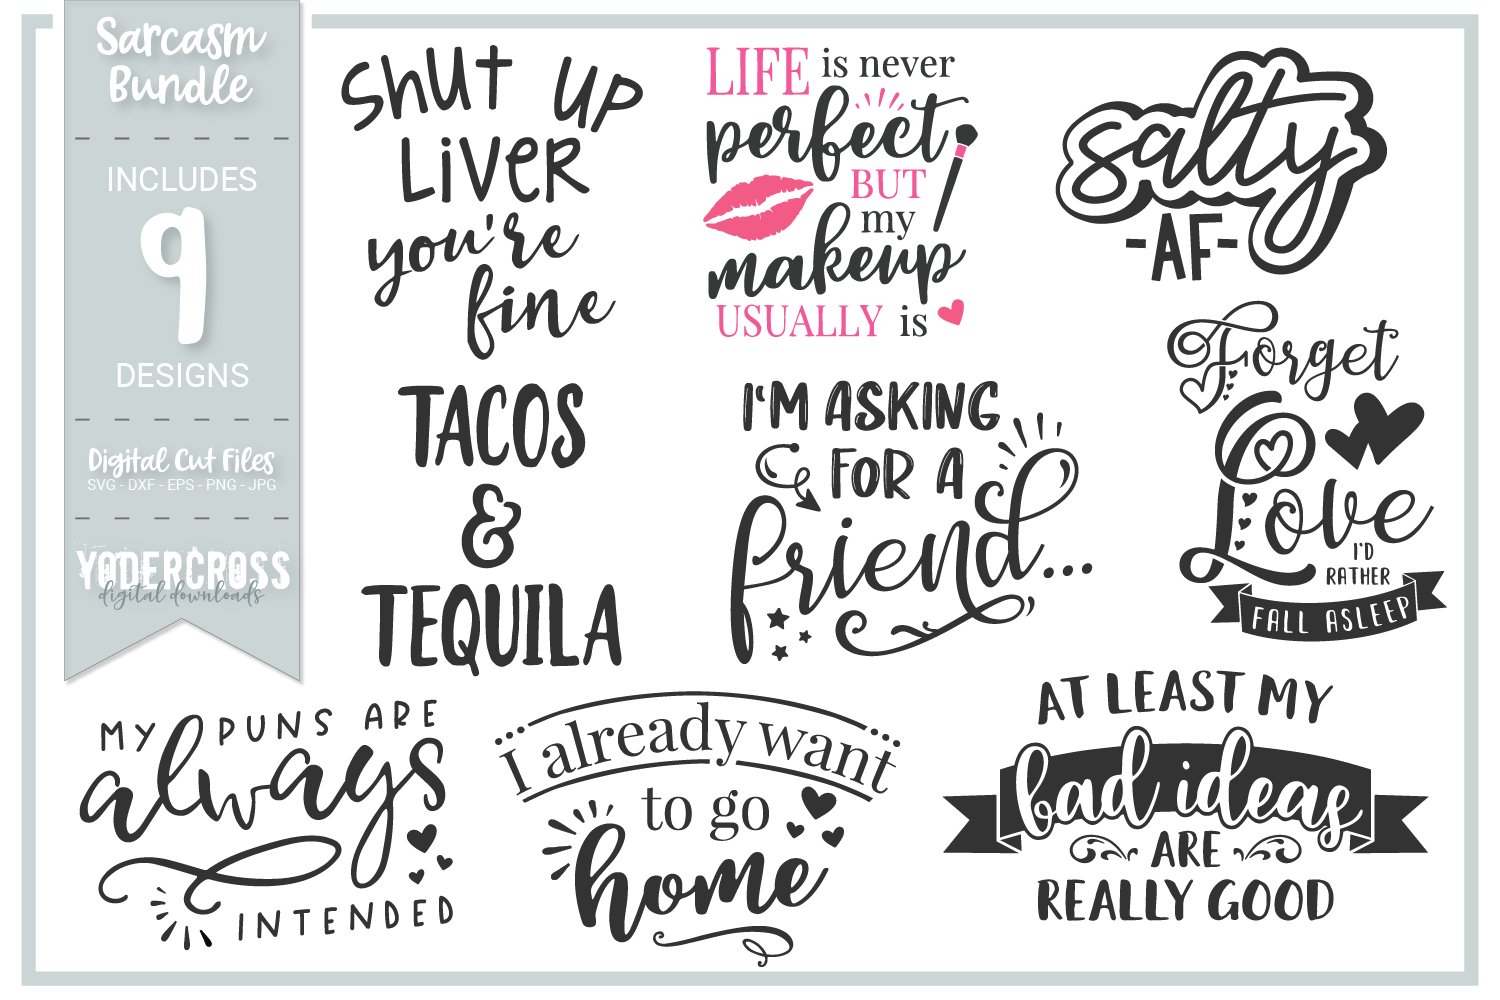 Sarcasm
Bundle
INCLUDES
9
DESIGNS
Digital Cut Files
SVG - DXF - EPS - PNG - JPG
YODERCROSS
digital downloads
Shut up
Liver
you're
fine
LIFE is never
perfect
BUT
my
makeup
USUALLY is
salty
-AF-
TACOS
&
TEQUILA
I'M ASKING
FOR A
friend...
Forget
Love
I'D
RATHER
FALL ASLEEP
MY PUNS ARE
always
INTENDED
I already want
to go
home
AT LEAST MY
bad ideas
ARE
REALLY GOOD